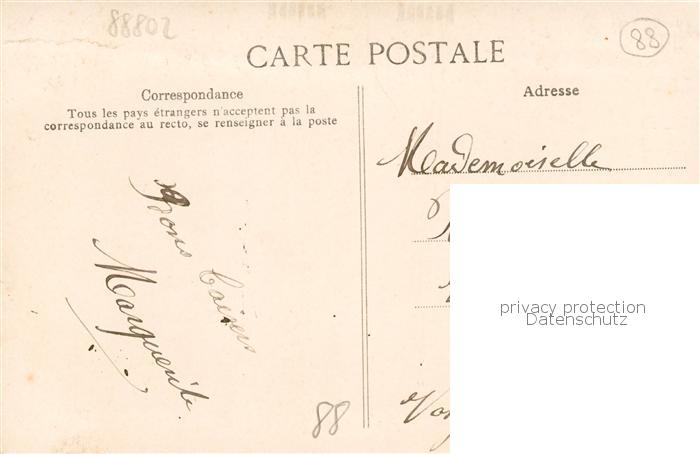 88802
88
CARTE POSTALE
Correspondance
Tous les pays étrangers n'acceptent pas la
correspondance au recto, se renseigner à la poste
Bons Baisers
Marguerite.
88
Adresse
Mademoiselle
privacy protection
Datenschutz